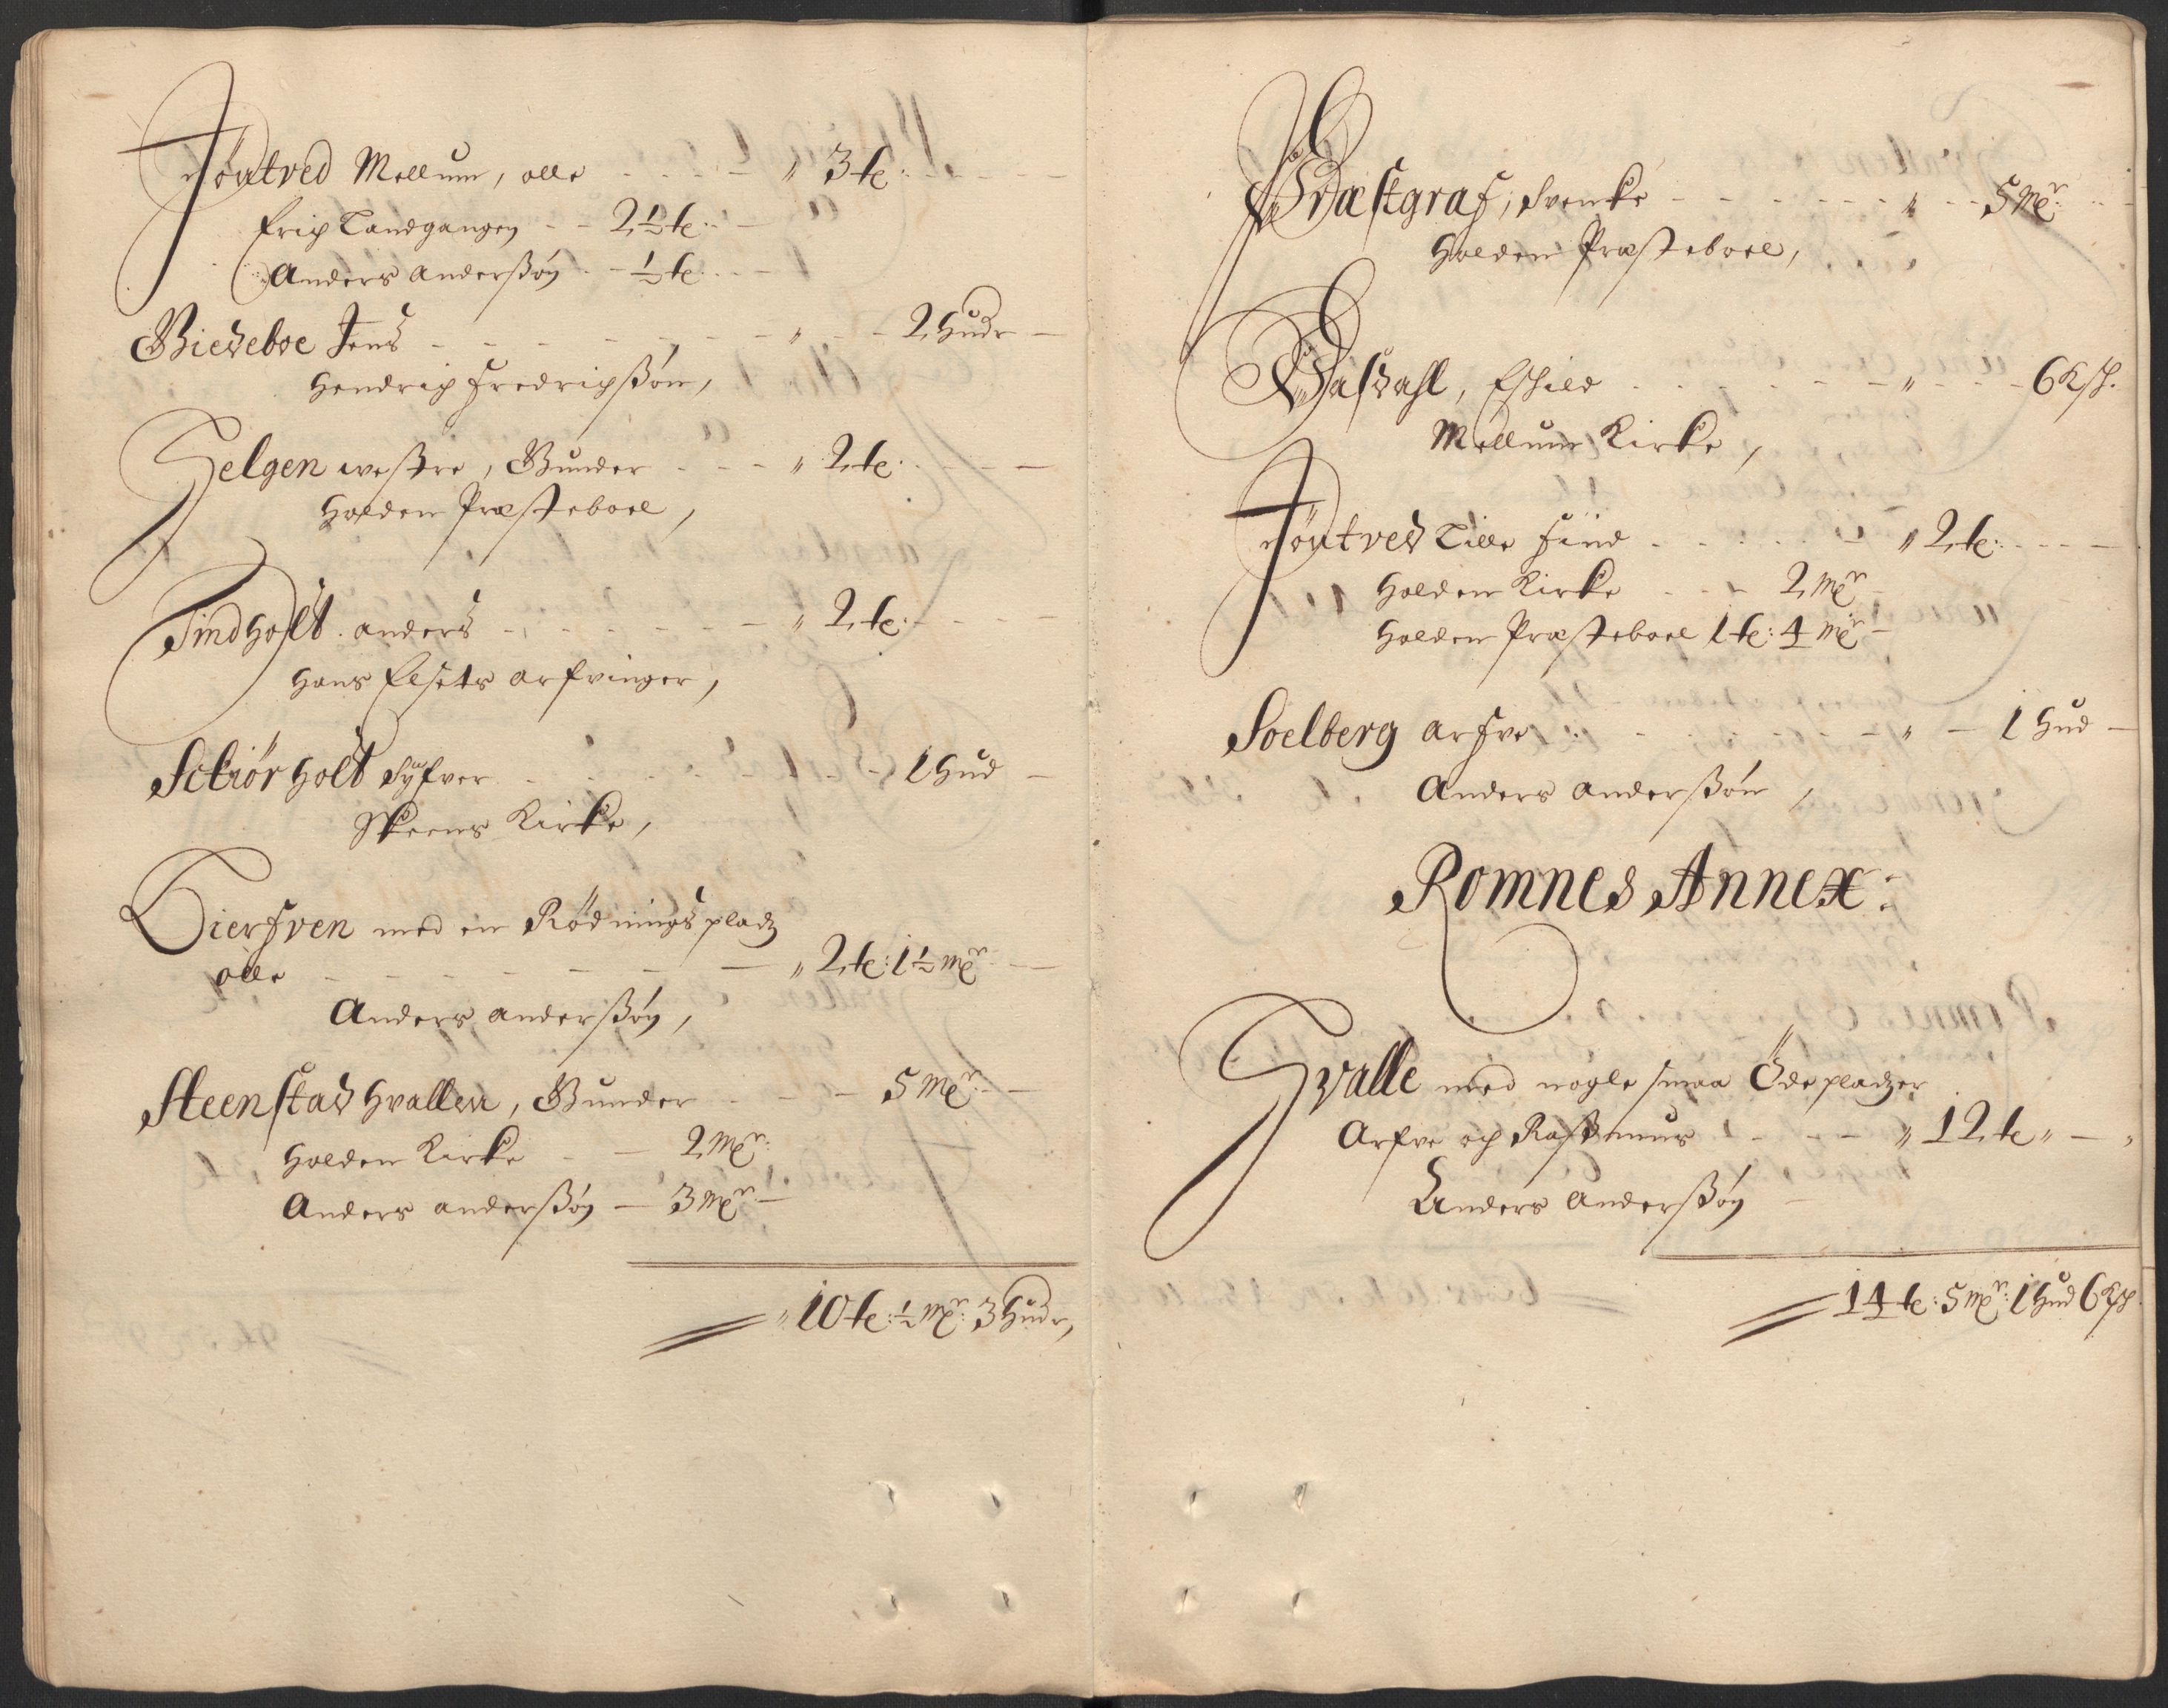 Jöntved Mellum, olle - - - „ 3 te: - -
Erich Landgangen - - 2½ te: -
Anders Anderßøn - - ½ te - -
Bieseboe Jens - - - - - - „ - - 2 Hudr -
Hendrich Fredrichßøn,
Helgen westre, Gunder - - - „ 2 te: - - -
Holden Præsteboel,
Tindholt. anders - - - - - „ 2 te: - - -
Hans Elsets arfvinger,
Schiörholt Syfver - - - - - - 1 Hud -
Skeens Kirke,
Tierfven med en Rødnings pladz
olle - - - - - - - „ 2 te: 1½ mkr -
Anders anderßøn,
Steenstad Hvallen, Gunder - - - 5 Mkr: -
Holden Kirke - - 2 Mkr:
Anders anderßøn - 3 Mkr: -
„ 10 te: ½ Mkr: 3 Hudr,
Præstgraf, Svenke - - - - - „ - - 5 Mkr: -
Holden Præsteboel,
Dahl, Eskild - - - - - „ - - - 6 Ksk.
Mellum Kirke,
Jöntved Lille Find - - - - - „ 2 te: - - -
Holden Kirke - - - 2 Mkr
Holden Præsteboel 1 te: 4 Mkr -
Soelberg arfve - - - - - - „ - 1 Hud -
Anders anderßøn,
Romnes Annex:
Hvalle med nogle smaa Öde pladzer
Arfve och Rasmus - - - „ 12 te „ - „
Anders Anderßøn -
14 te: 5 Mkr: 1 Hud 6 Ksk